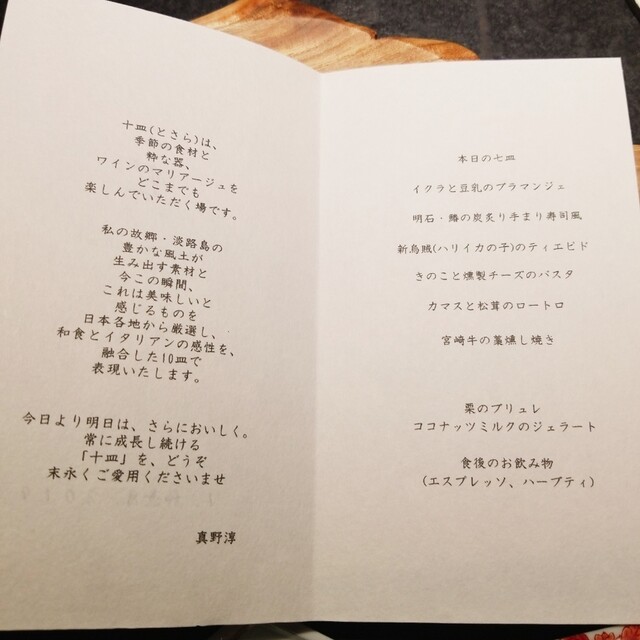 十皿(とさら)は、
季節の食材と
粋な器、
ワインのマリアージュを
どこまでも
楽しんでいただく場です。
私の故郷・淡路島の
豊かな風土が
生み出す素材と
今この瞬間、
これは美味しいと
感じるものを
日本各地から厳選し、
和食とイタリアンの感性を、
融合した10皿で
表現いたします。
今日より明日は、さらにおいしく。
常に成長し続ける
「十皿」を、どうぞ
末永くご愛用くださいませ
真野淳
本日の七皿
イクラと豆乳のブラマンジェ
明石・鰆の炭炙り手まり寿司風
新烏賊(ハリイカの子)のティエピド
きのこと燻製チーズのパスタ
カマスと松茸のロートロ
宮崎牛の藁燻し焼き
栗のブリュレ
ココナッツミルクのジェラート
食後のお飲み物
(エスプレッソ、ハーブティ)